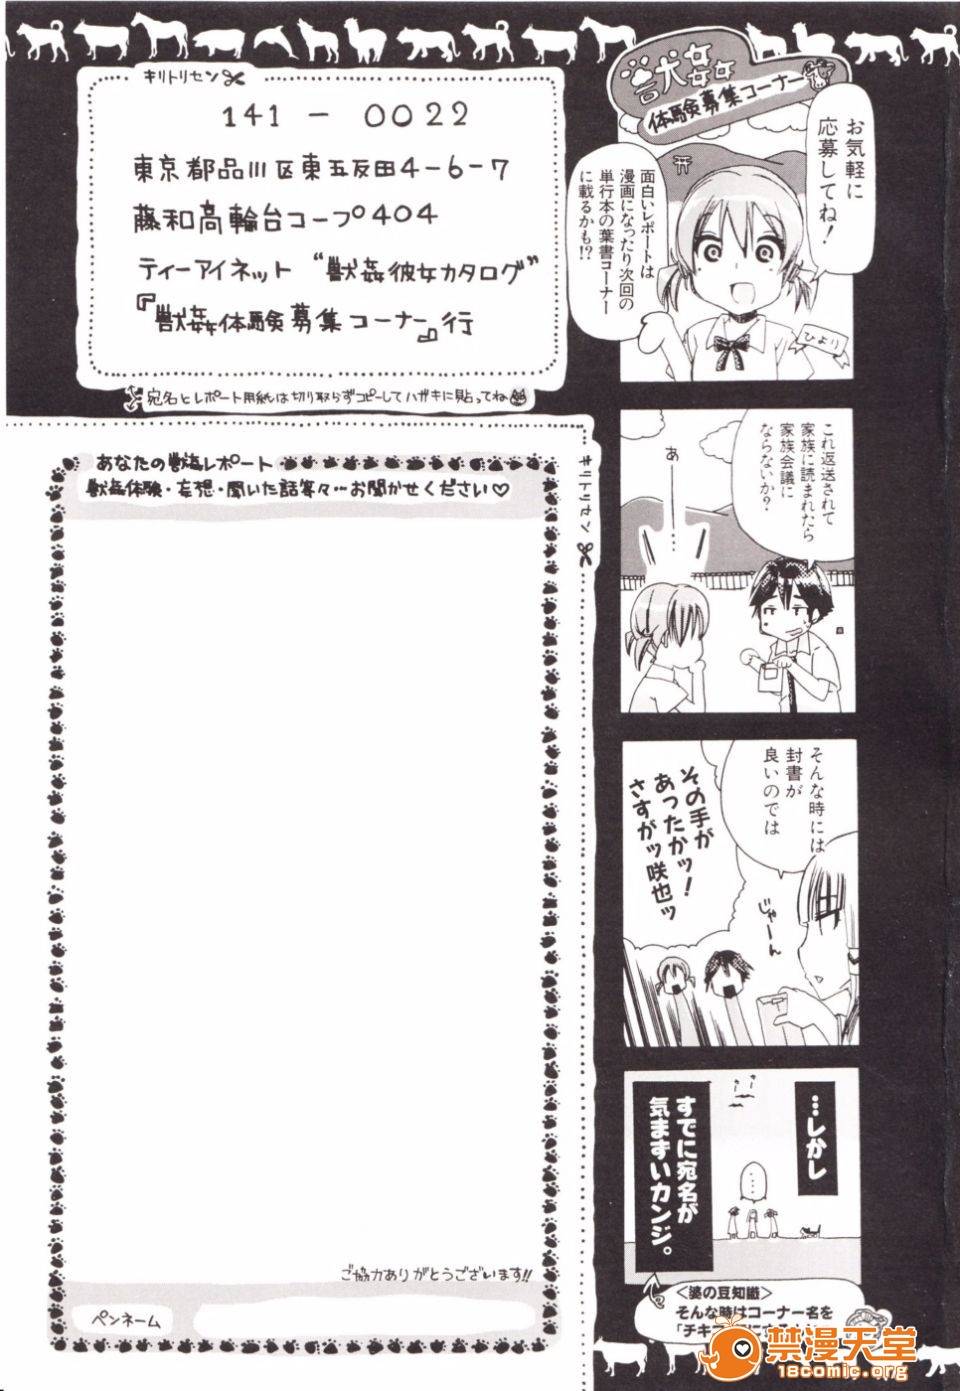 キリトリセン
141-0022
東京都品川区東五反田4-6-7
藤和高輪台コープ404
ティーアイネット “獣姦彼女カタログ”
『獣姦体験募集コーナー』行
宛名とレポート用紙は切り取らずコピーしてハガキに貼ってね
キリトリセン
あなたの獣姦レポート
獣姦体験・妄想・聞いた話等々…お聞かせください♡
ご協力ありがとうございます!!
ペンネーム
獣姦
体験募集コーナー
お気軽に
応募してね!
面白いレポートは
漫画になったり次回の
単行本の葉書コーナー
に載るかも!?
ひより
これ返送されて
家族に読まれたら
家族会議に
ならないか?
あ
ー
…
そんな時には
封書が
良いのでは
じゃーん
その手が
あったかッ!
さすがッ咲也ッ
…しかし
……
すでに宛名が
気まずいカンジ。
<婆の豆知識>
そんな時はコーナー名を
「チキ
禁漫天堂
18comic.org